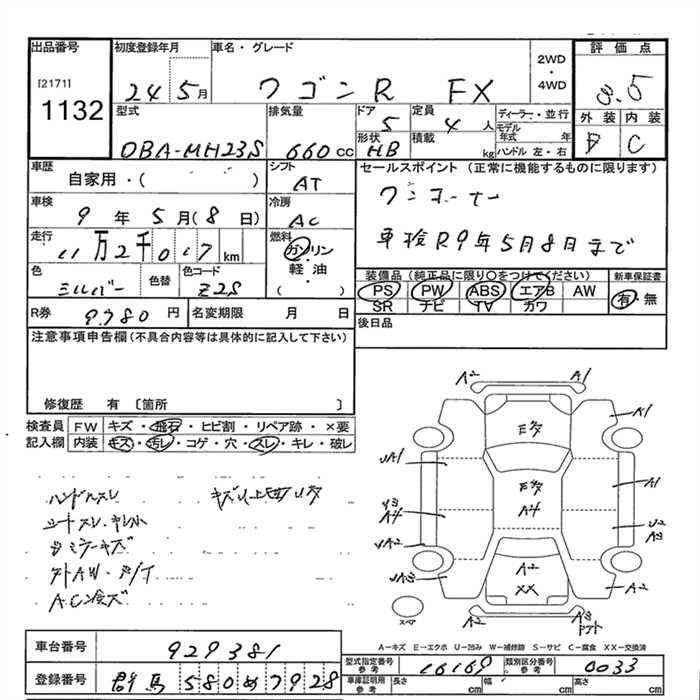 出品番号
[2171]
1132
初度登録年月
24 5月
車名・グレード
ワゴンR FX
2WD
・
4WD
評価点
3.5
外装 内装
D C
型式
DBA-MH23S
排気量
660 cc
ドア
5
形状
HB
定員
4 人
積載
kg
ディーラー・並行
モデル年式 年
ハンドル 左・右
車歴
自家用・( )
シフト
AT
車検
9 年 5 月 ( 8 日)
冷房
AC
走行
11万2千017 km
燃料
ガソリン
・
軽・油
( )
色
シルバー
色替
色コード
Z2S
R券
9,780 円
名変期限 月 日
セールスポイント (正常に機能するものに限ります)
ワンオーナー
車検R9年5月8日まで
装備品 (純正品に限り○をつけてください)
PS PW ABS エアB AW
SR ナビ TV カワ
新車保証書
有・無
後日品
注意事項申告欄(不具合内容等は具体的に記入して下さい)
修復歴 有 〔箇所 〕
検査員
記入欄
FW キズ・飛石・ヒビ割・リペア跡・×要
内装 キズ・汚レ・コゲ・穴・スレ・キレ・破レ
ハンドルスレ
シートスレ・キレ小
AC冷ズ
A2 A1
A1
UA1
A1
A4
A4
UA2
U2
A2
A2
XX
A2
スペア
A-キズ E-エクボ U-凹み W-補修跡 S-サビ C-腐食 XX-交換済
車台番号
929381
登録番号
群馬 580 め 7928
型式指定番号
参考
16169
類別区分番号
参考
0033
車庫証明用
参考
長さ cm
幅 cm
高さ cm